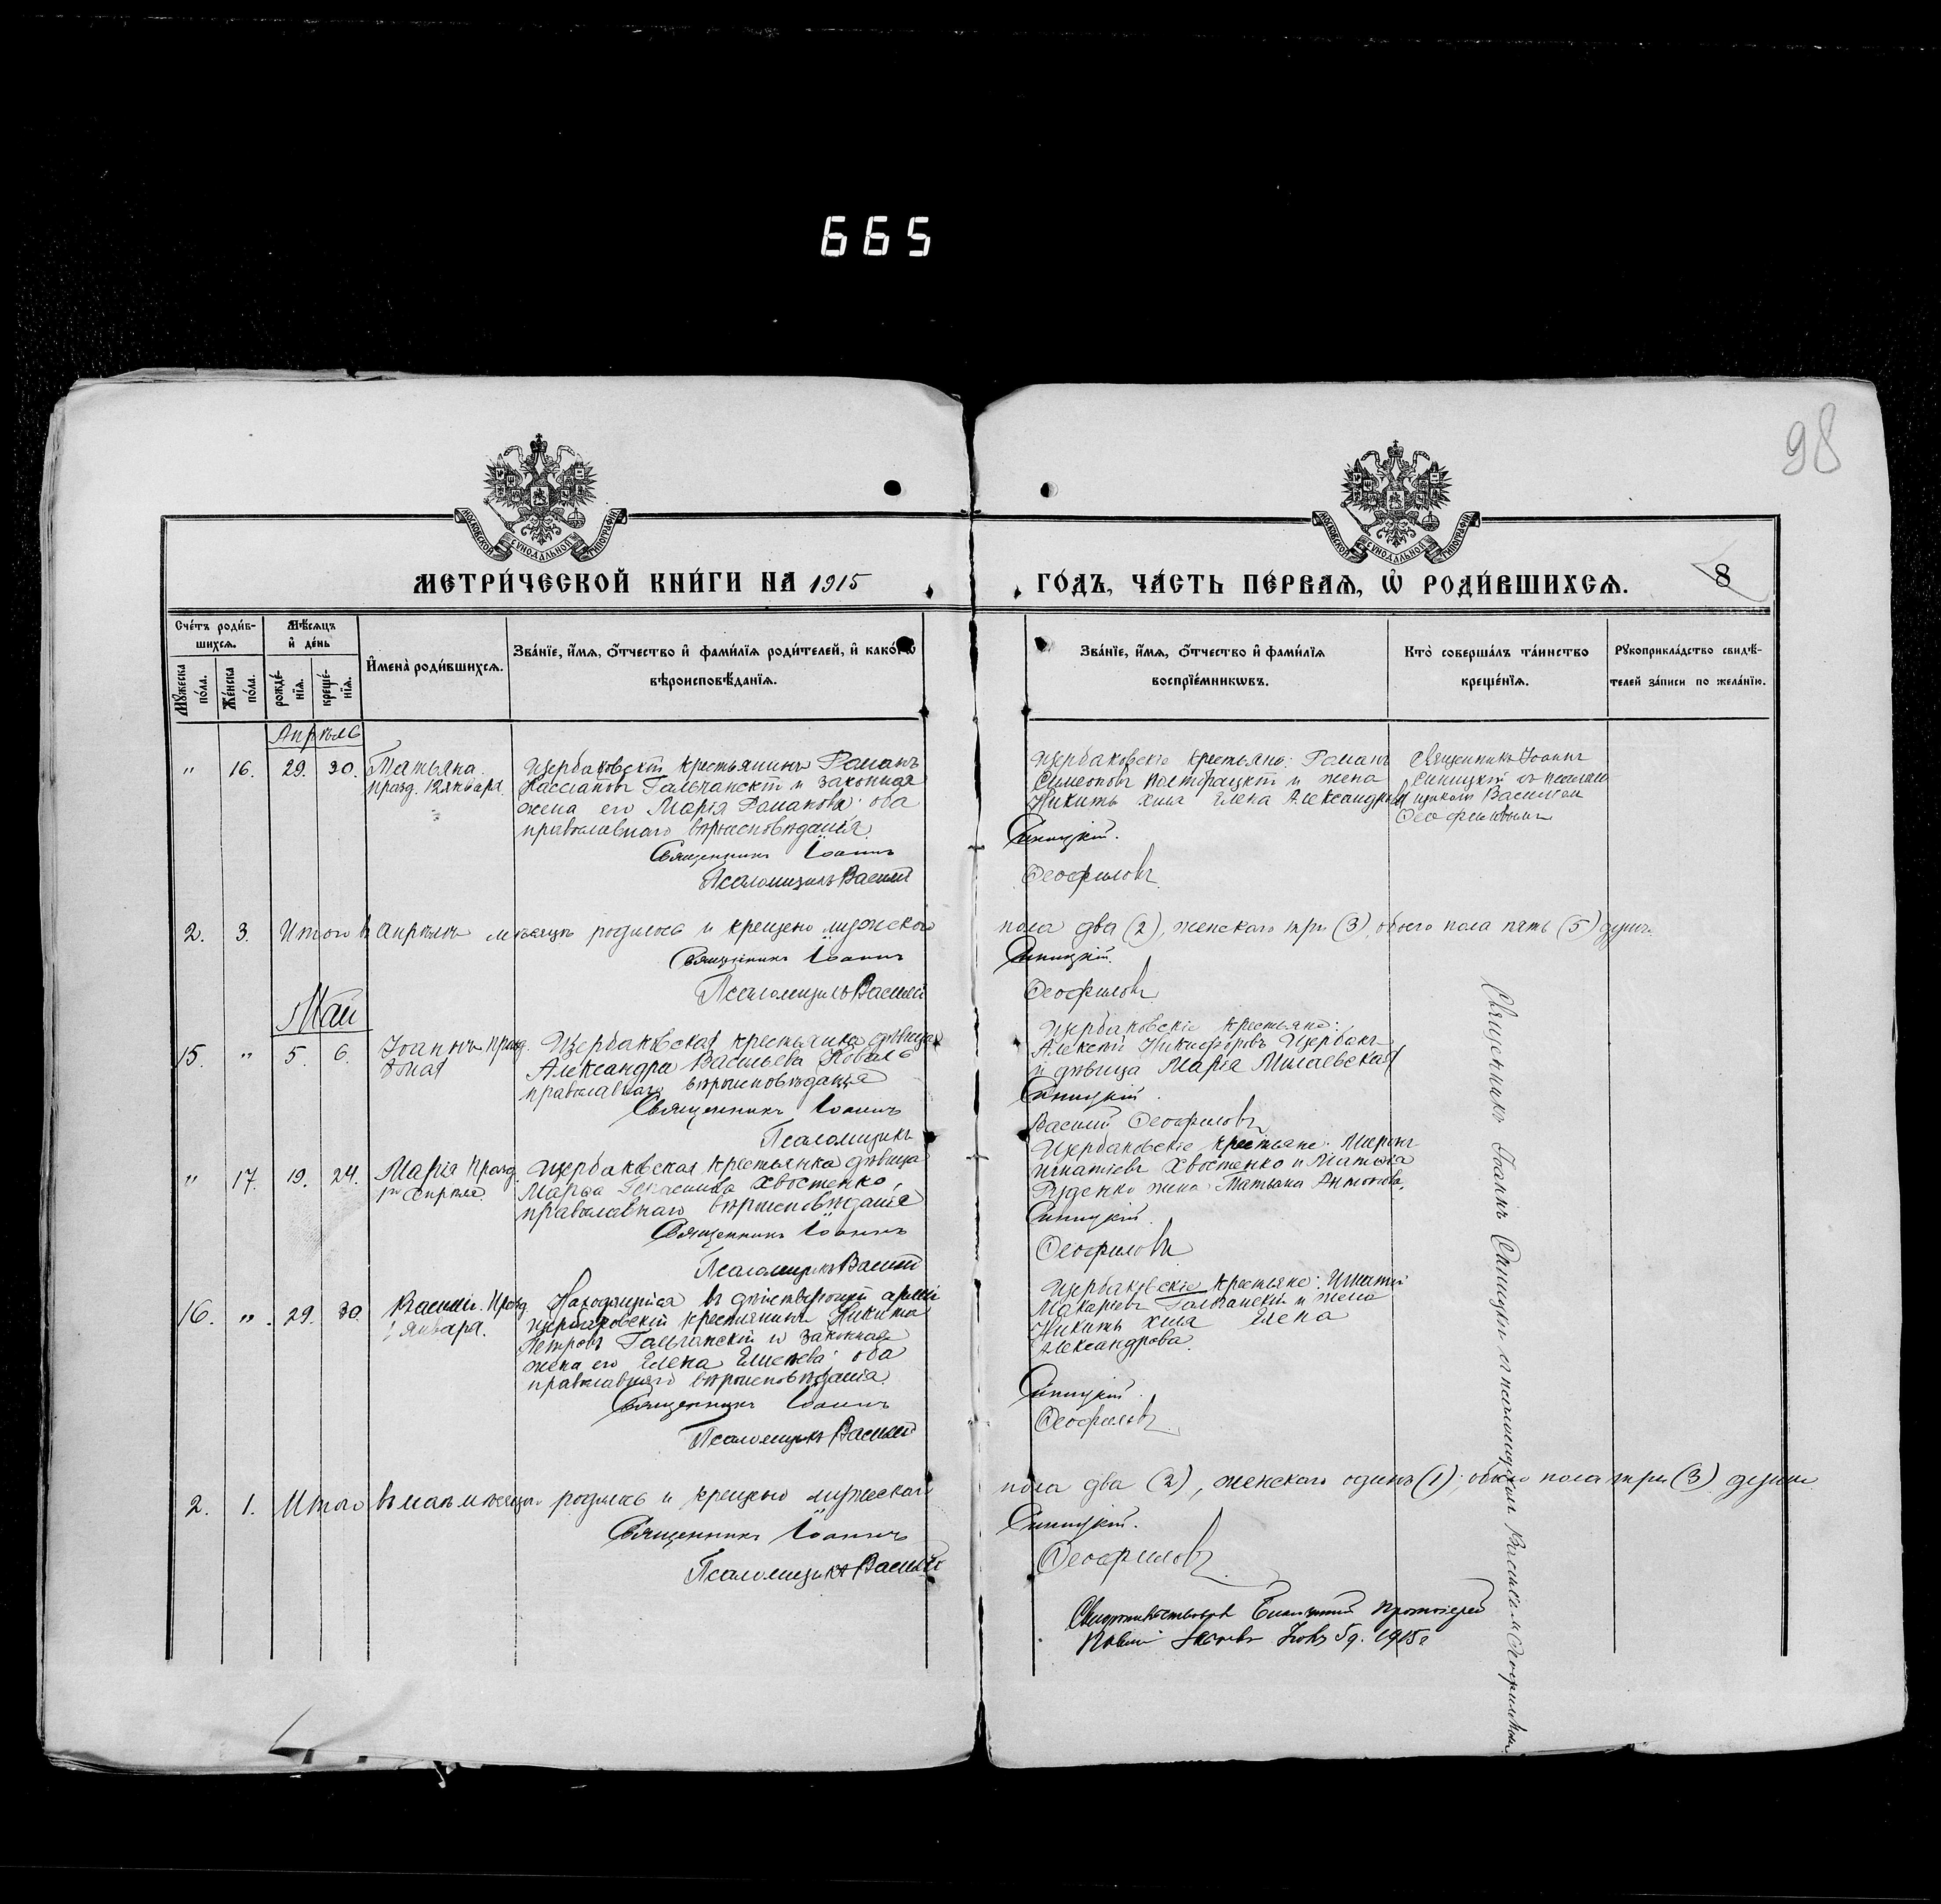 665
98
МОСКОВСКОЙ СУНОДАЛЬНОЙ ТИПОГРАФІИ
МОСКОВСКОЙ СУНОДАЛЬНОЙ ТИПОГРАФІИ
МЕТРИ́ЧЕСКОЙ КНИ́ГИ НА 1915
ГО́ДЪ, ЧА́СТЬ ПЕ́РВАѦ, Ѡ҆ РОДИ́ВШИХСѦ.
8
Сче́тъ роди́в-
шихсѧ.
Мꙋ́жеска по́ла.
Же́нска по́ла.
Мѣ́сѧцъ
и҆ де́нь
рожде́-
нїѧ.
креще́-
нїѧ.
И҆мена̀ роди́вшихсѧ.
Зва́нїе, и҆́мѧ, ѻ҆́тчество и҆ фами́лїѧ роди́телей, и҆ како́гѡ
вѣроисповѣ́данїѧ.
Зва́нїе, и҆́мѧ, ѻ҆́тчество и҆ фами́лїѧ
воспрїе́мникѡвъ.
Кто̀ соверша́лъ та́инство
креще́нїѧ.
Рꙋкоприкла́дство свидѣ́-
телей за́писи по жела́нїю.
Апрѣль
" 16. 29. 30.
Татьяна
празд. 12 января
Щербаковскій крестьянинъ Романъ
Кассіановъ Гальчанскій и законная
жена его Марія Романова; оба
православнаго вѣроисповѣданія.
Священникъ Іоаннъ
Псаломщикъ Василій
Щербаковскіе крестьяне: Романъ
Симеоновъ и жена
Никиты Елена Александрова
Синицкій.
Ѳеофиловъ
Священникъ Іоаннъ
Синицкій съ псалом
щикомъ Василіем
Ѳеофиловымъ
2. 3. Итого въ апрѣлѣ мѣсяцѣ родилось и крещено мужского
пола два (2), женскаго три (3), обоего пола пять (5) душъ.
Священникъ Іоаннъ
Синицкій.
Псаломщикъ Василій
Ѳеофиловъ
Май
15. " 5. 6.
Іоаннъ празд.
Щербаковская крестьянка дѣвица
Александра Васильева Коваль
православнаго вѣроисповѣданія
Священникъ Іоаннъ
Псаломщикъ
Щербаковскіе крестьяне:
Алексѣй Никифоровъ Щербакъ
и дѣвица Марія Милаевская
Синицкій.
Василій Ѳеофиловъ
" 17. 19. 24.
Марія празд.
1го апрѣля.
Щербаковская крестьянка дѣвица
Марѳа Герасимова Хвостенко,
православнаго вѣроисповѣданія
Священникъ Іоаннъ
Псаломщикъ Василій
Щербаковскіе крестьяне: Миронъ
Игнатіевъ Хвостенко и Матѳія
Руденко жена Татьяна Антонова.
Синицкій.
Ѳеофиловъ
16. " 29. 30.
Василій. Празд.
1 января.
Находящійся въ дѣйствующей арміи
Щербаковскій крестьянинъ Никита
Петровъ Гальчанскій и законная
жена его Елена Елисѣева; оба
православнаго вѣроисповѣданія.
Священникъ Іоаннъ
Псаломщикъ Василій
Щербаковскіе крестьяне: Игнатій
Макаріевъ Гальчанскій и жена
Никиты Елена
Александрова.
Синицкій.
Ѳеофиловъ
Священникъ Іоаннъ Синицкій съ псаломщикомъ Василіемъ Ѳеофиловымъ
2. 1. Итого въ маѣ мѣсяцѣ родилось и крещено мужескаго
пола два (2), женскаго одинъ (1); обоего пола три (3) души.
Священникъ Іоаннъ
Синицкій.
Псаломщикъ Василій
Ѳеофиловъ
Свидѣтельствовалъ Благочинный Протоіерей
1915 г